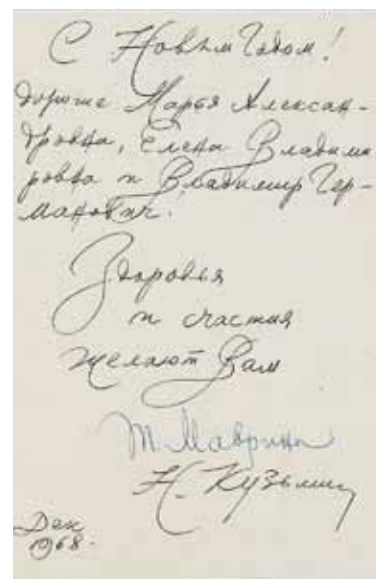 С Новым Годом!
дорогие Марья Алексан-
дровна, Елена Владими
ровна и Владимир Гер-
манович!
Здоровья
и счастия
желают Вам
Т. Маврина
Н. Кузьмин
Дек
1968.